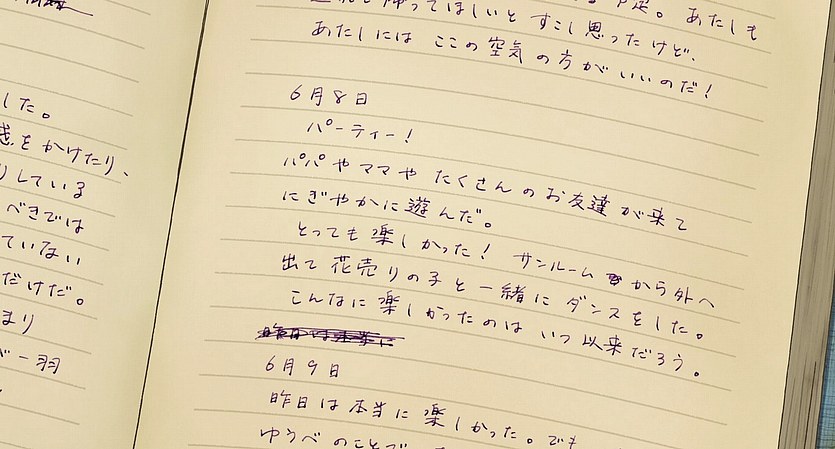 した。
をかけたり、
りしている
べきでは
ていない
だけだ。
まり
一羽
帰ってほしいと すこし思ったけど、
あたしも
あたしには ここの空気の方がいいのだ!
6月8日
パーティー!
パパやママや たくさんのお友達が来て
にぎやかに遊んだ。
とっても楽しかった! サンルームから外へ
出て花売りの子と一緒にダンスをした。
こんなに楽しかったのは いつ以来だろう。
昨日は本当に
6月9日
昨日は本当に楽しかった。でも
ゆうべのことで